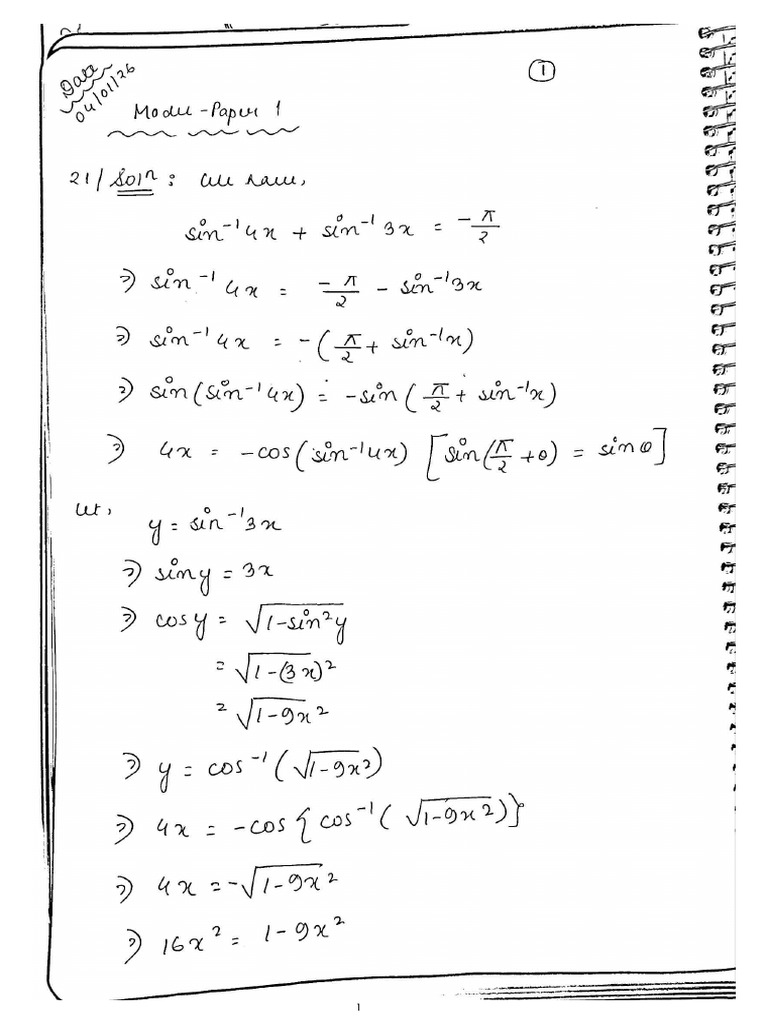 Date
04/01/26
①
Model-Paper 1
21/ Solⁿ: We have,
sin⁻¹4x + sin⁻¹3x = -π/2
⇒ sin⁻¹4x = -π/2 - sin⁻¹3x
⇒ sin⁻¹4x = -(π/2 + sin⁻¹x)
⇒ sin(sin⁻¹4x) = -sin(π/2 + sin⁻¹x)
⇒ 4x = -cos(sin⁻¹4x) [sin(π/2 + θ) = sinθ]
Let,
y = sin⁻¹3x
⇒ siny = 3x
⇒ cosy = √1-sin²y
= √1-(3x)²
= √1-9x²
⇒ y = cos⁻¹(√1-9x²)
⇒ 4x = -cos{cos⁻¹(√1-9x²)}
⇒ 4x = -√1-9x²
⇒ 16x² = 1-9x²
1